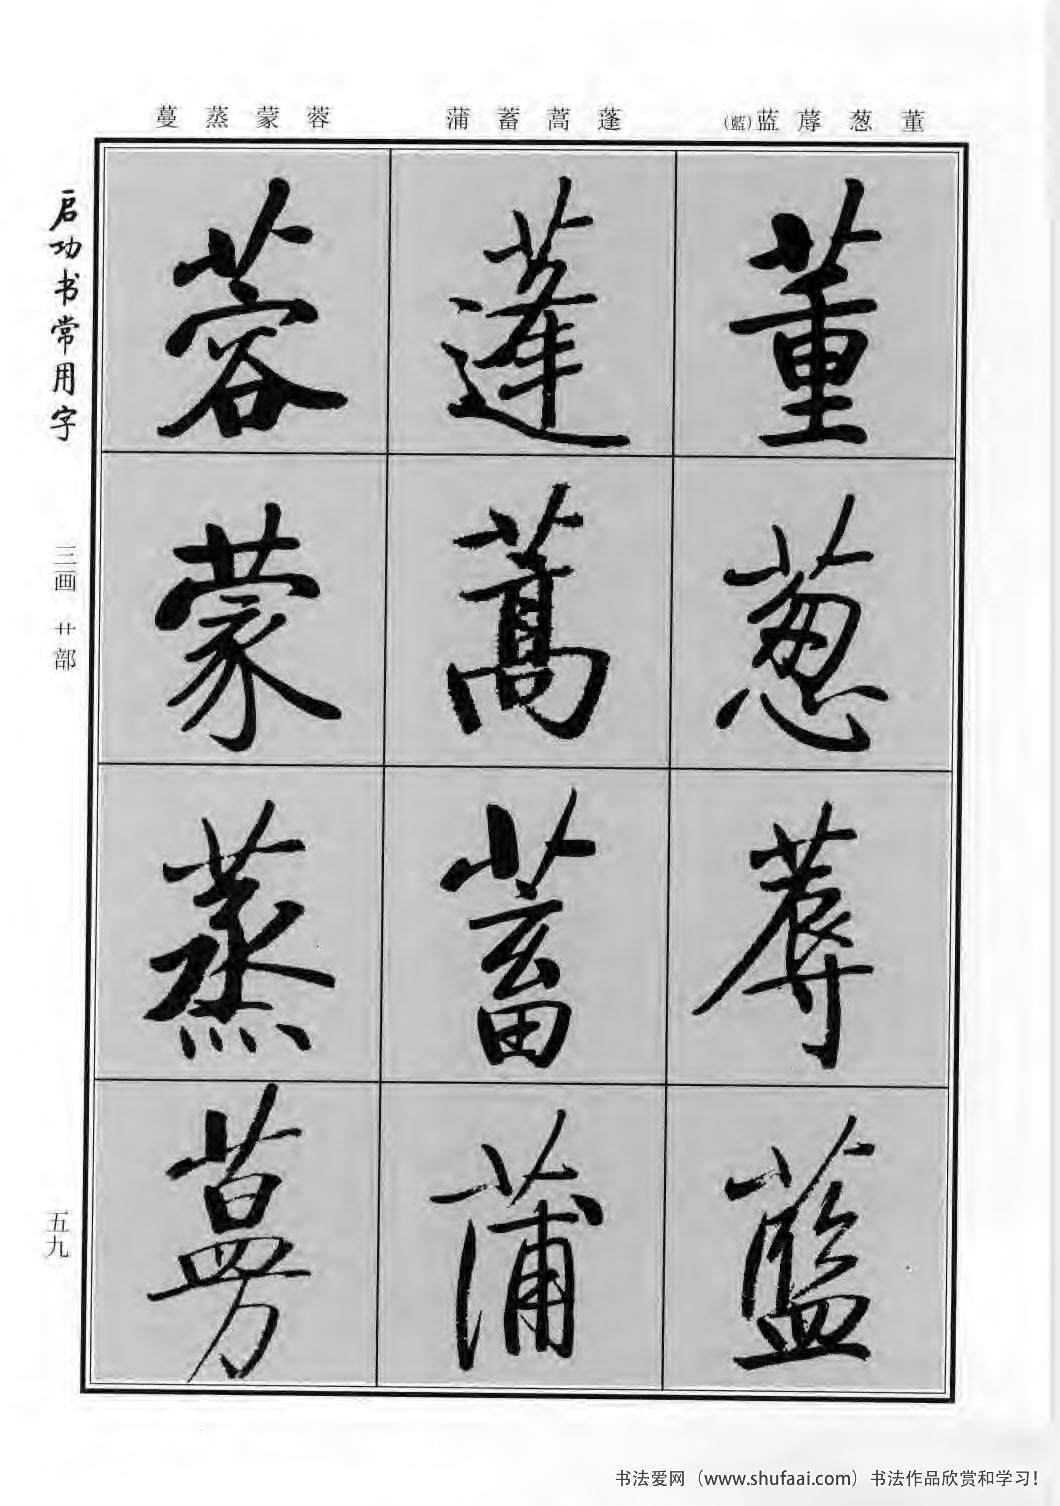 董葱蓐蓝(藍)
蓬蒿蓄蒲
蓉蒙蒸蔓
董
葱
蓐
藍
蓬
蒿
蓄
蒲
蓉
蒙
蒸
蔓
启功书常用字
三画 艹部
五九
书法爱网（www.shufaai.com）书法作品欣赏和学习！